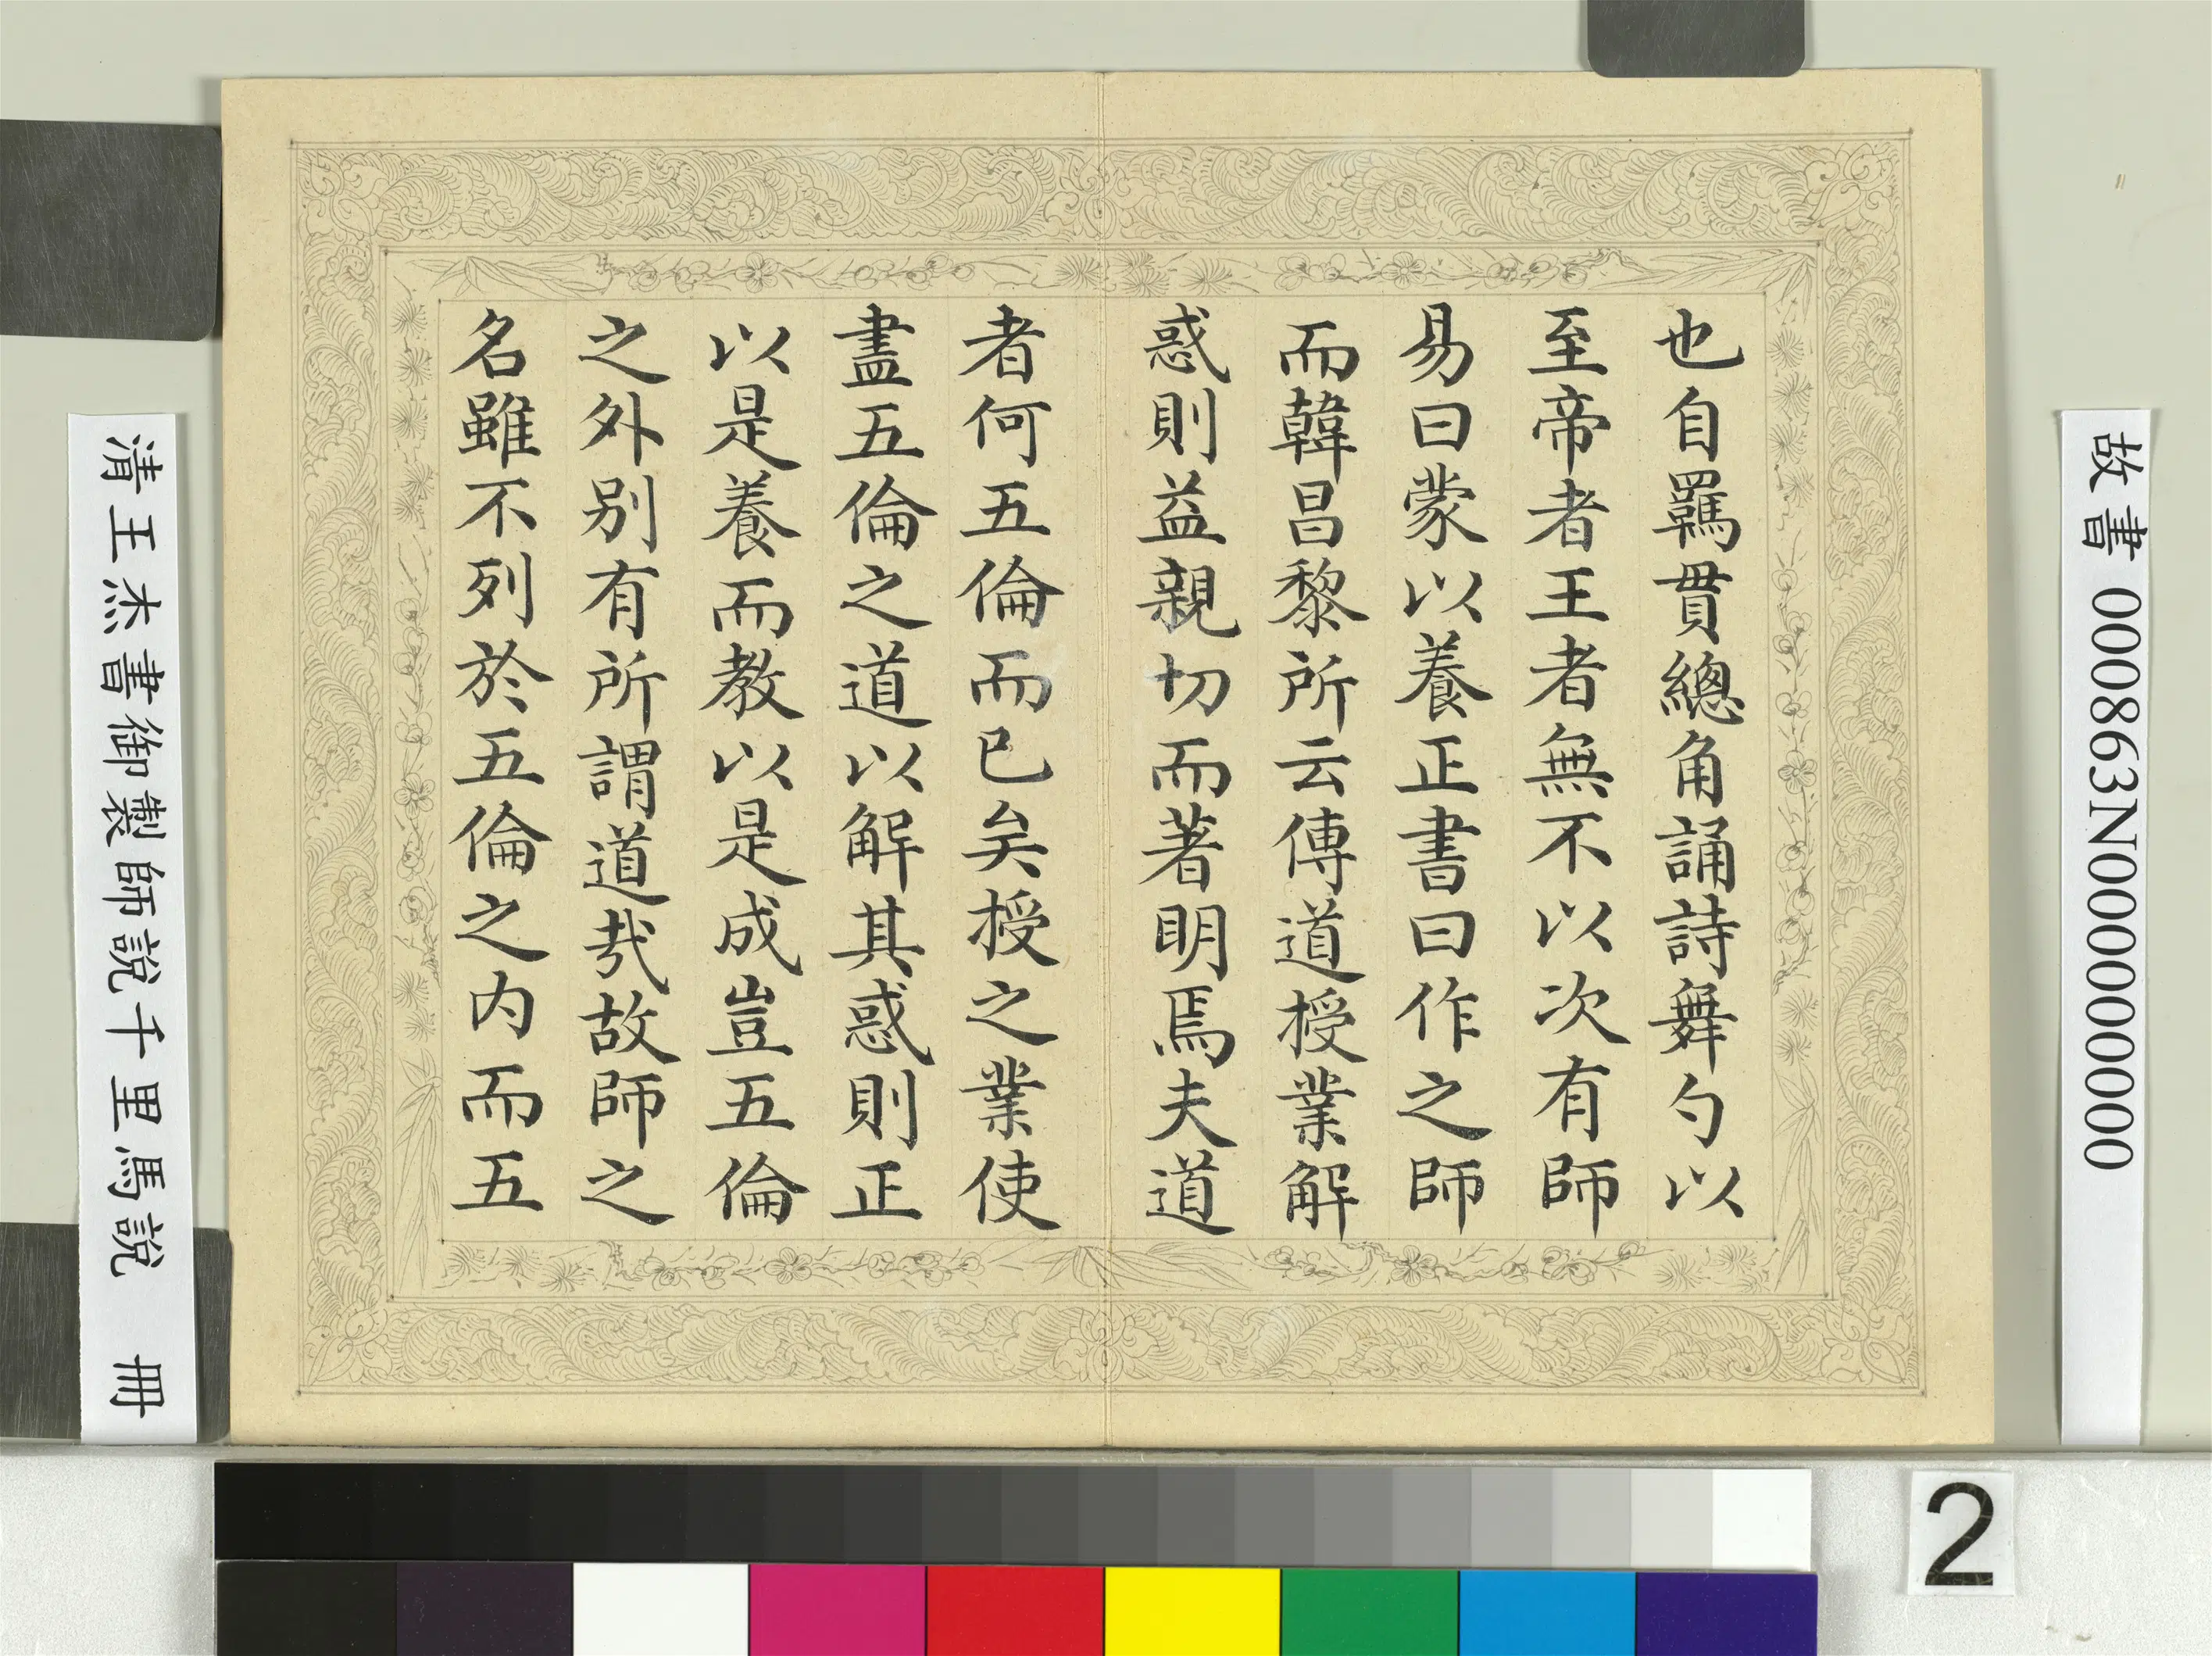 故書 000863N000000000
也自羈貫總角誦詩舞勺以
至帝者王者無不以次有師
易曰蒙以養正書曰作之師
而韓昌黎所云傳道授業解
惑則益親切而著明焉夫道
者何五倫而已矣授之業使
盡五倫之道以解其惑則正
以是養而教以是成豈五倫
之外別有所謂道哉故師之
名雖不列於五倫之内而五
清王杰書御製師說千里馬說 冊
2